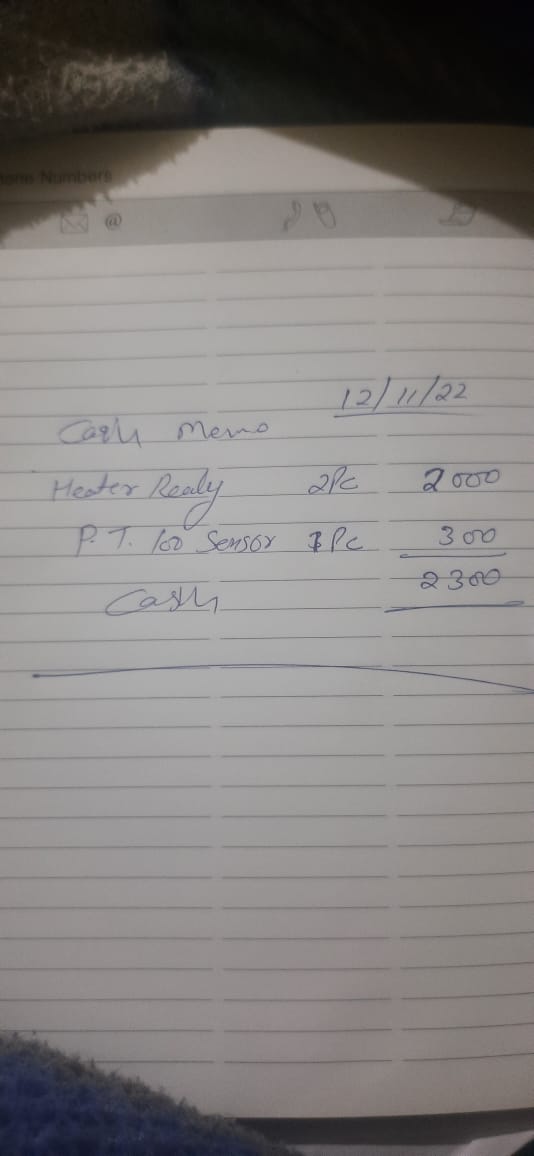 one Numbers
@
12/11/22
Cash Memo
Heater Realy 2Pc 2000
P.T. 100 Sensor 1 Pc 300
2300
Cash